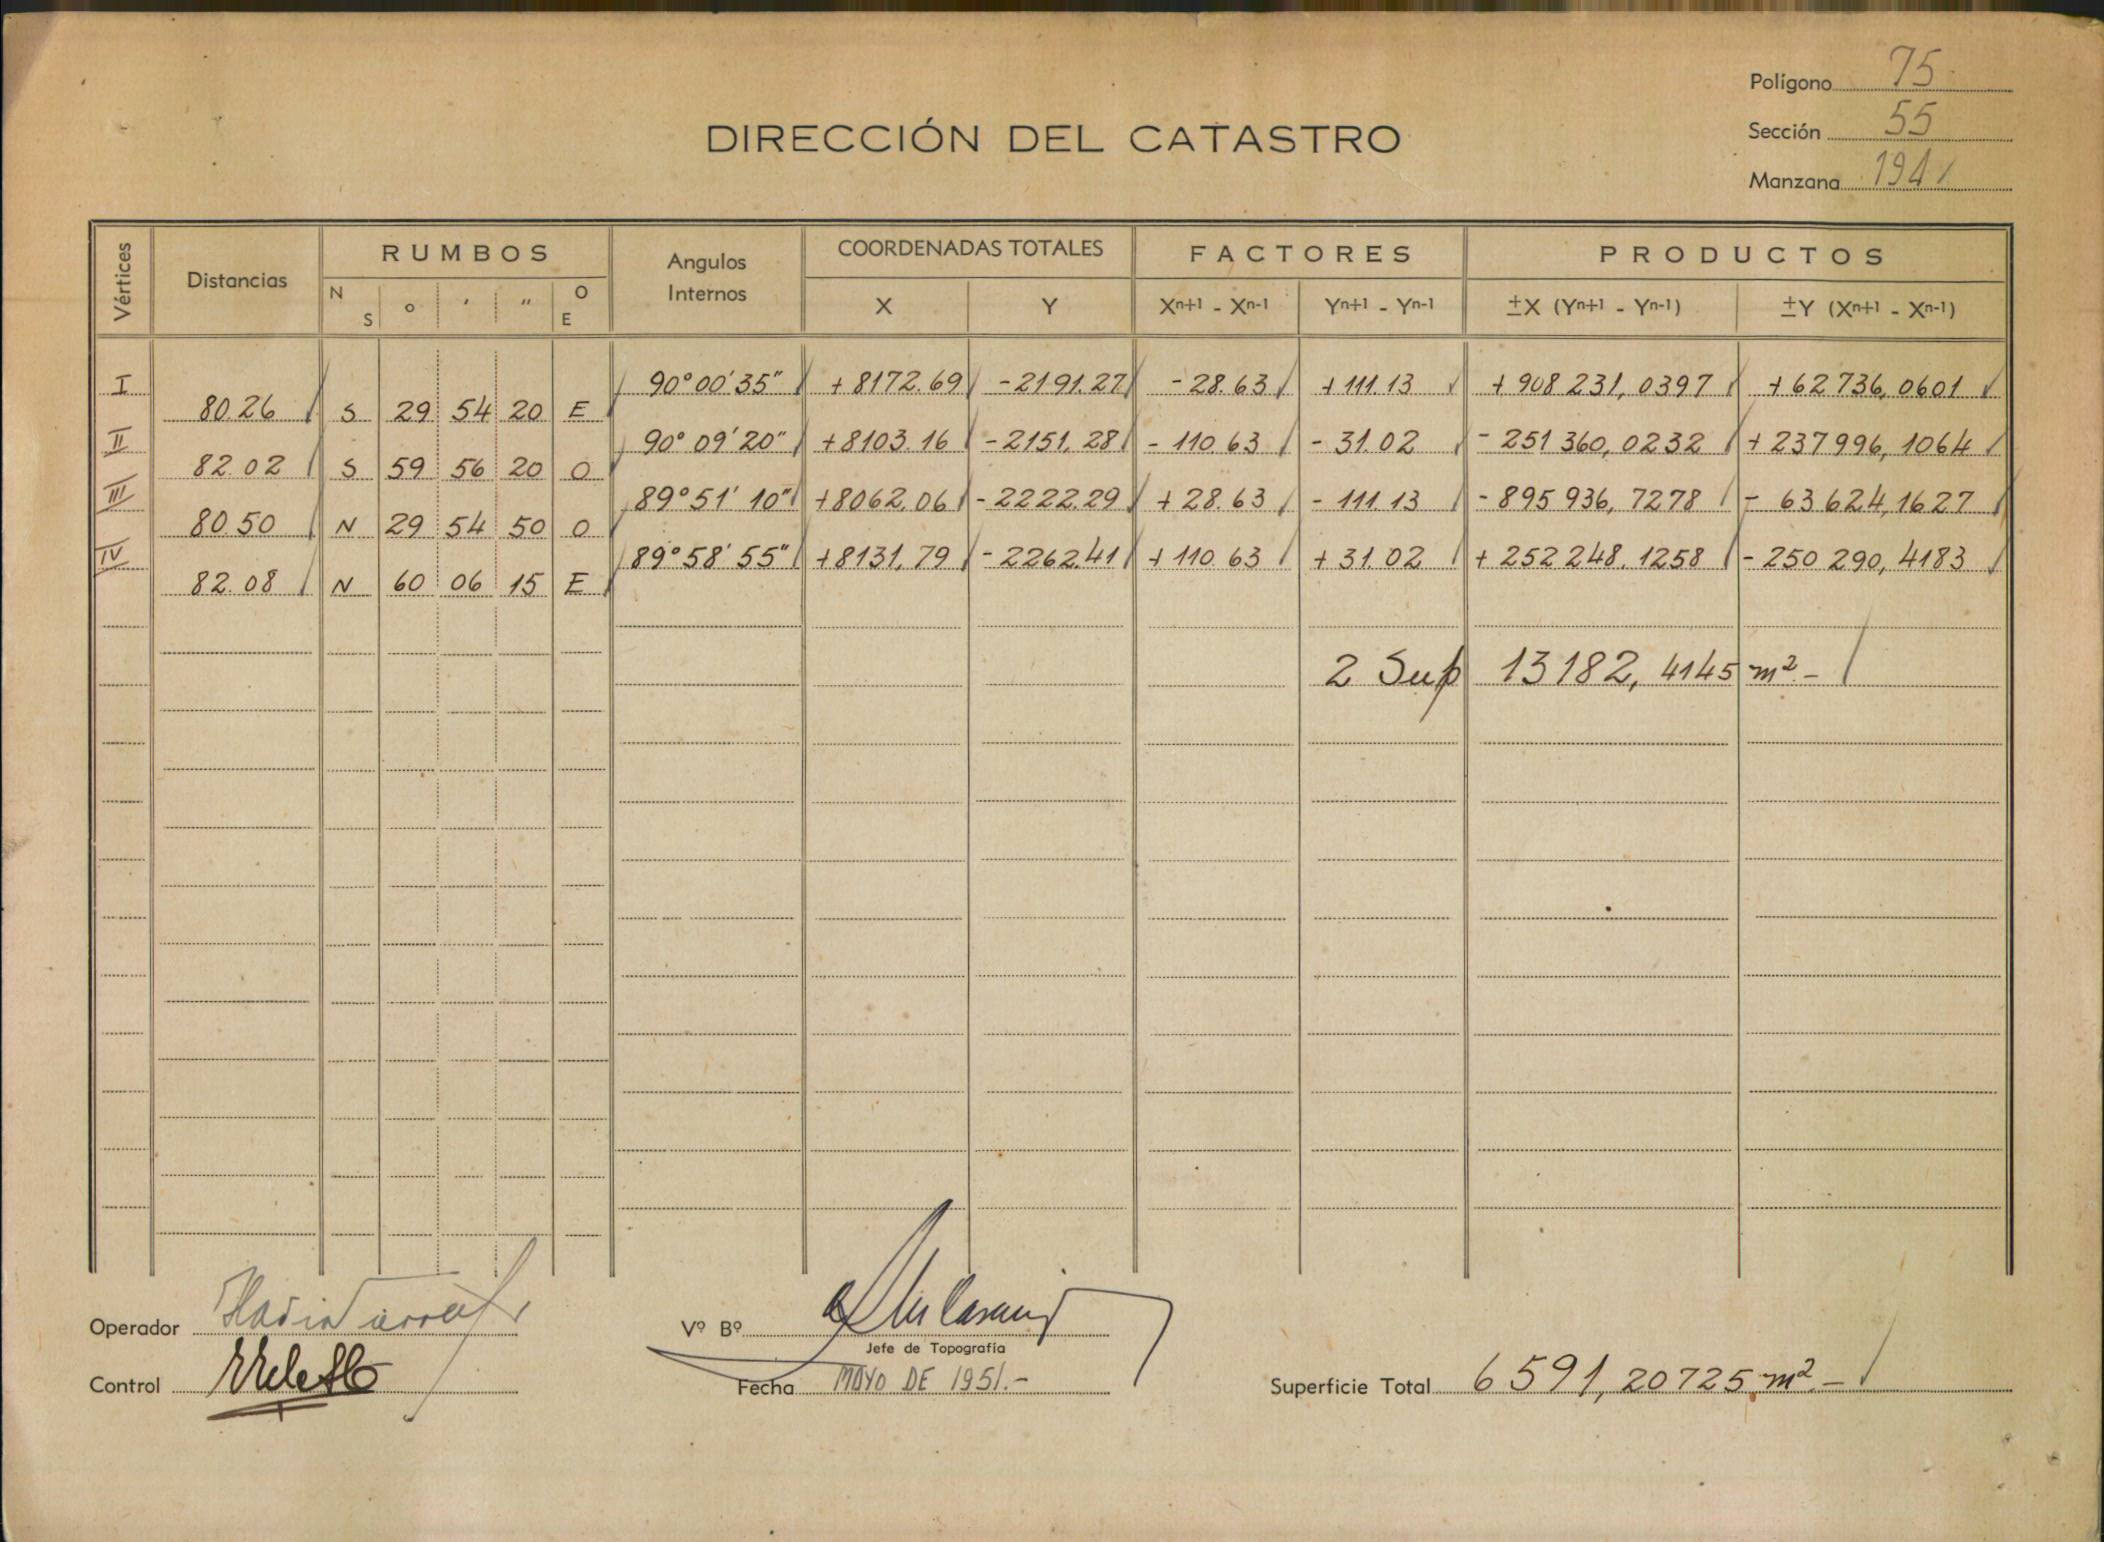 Polígono 75
DIRECCIÓN DEL CATASTRO
Sección 55
Manzana 194
Vértices Distancias RUMBOS Angulos Internos COORDENADAS TOTALES FACTORES PRODUCTOS
N S ° ′ ″ O E X Y Xn+1 - Xn-1 Yn+1 - Yn-1 ±X (Yn+1 - Yn-1) ±Y (Xn+1 - Xn-1)
I 90°00'35" +8172.69 -2191.27 -28.63 +111.13 +908 231,0397 +62 736,0601
80.26 S 29 54 20 E
II 90°09'20" +8103.16 -2151.28 -110.63 -31.02 -251 360,0232 +237 996,1064
82.02 S 59 56 20 O
III 89°51'10" +8062.06 -2222.29 +28.63 -111.13 -895 936,7278 -63 624,1627
80.50 N 29 54 50 O
IV 89°58'55" +8131.79 -2262.41 +110.63 +31.02 +252 248.1258 -250 290,4183
82.08 N 60 06 15 E
2 Sup 13182,4145 m².-
Operador
Vº Bº
Jefe de Topografía
Control
Fecha MAYO DE 1951.-
Superficie Total 6591,20725 m².-